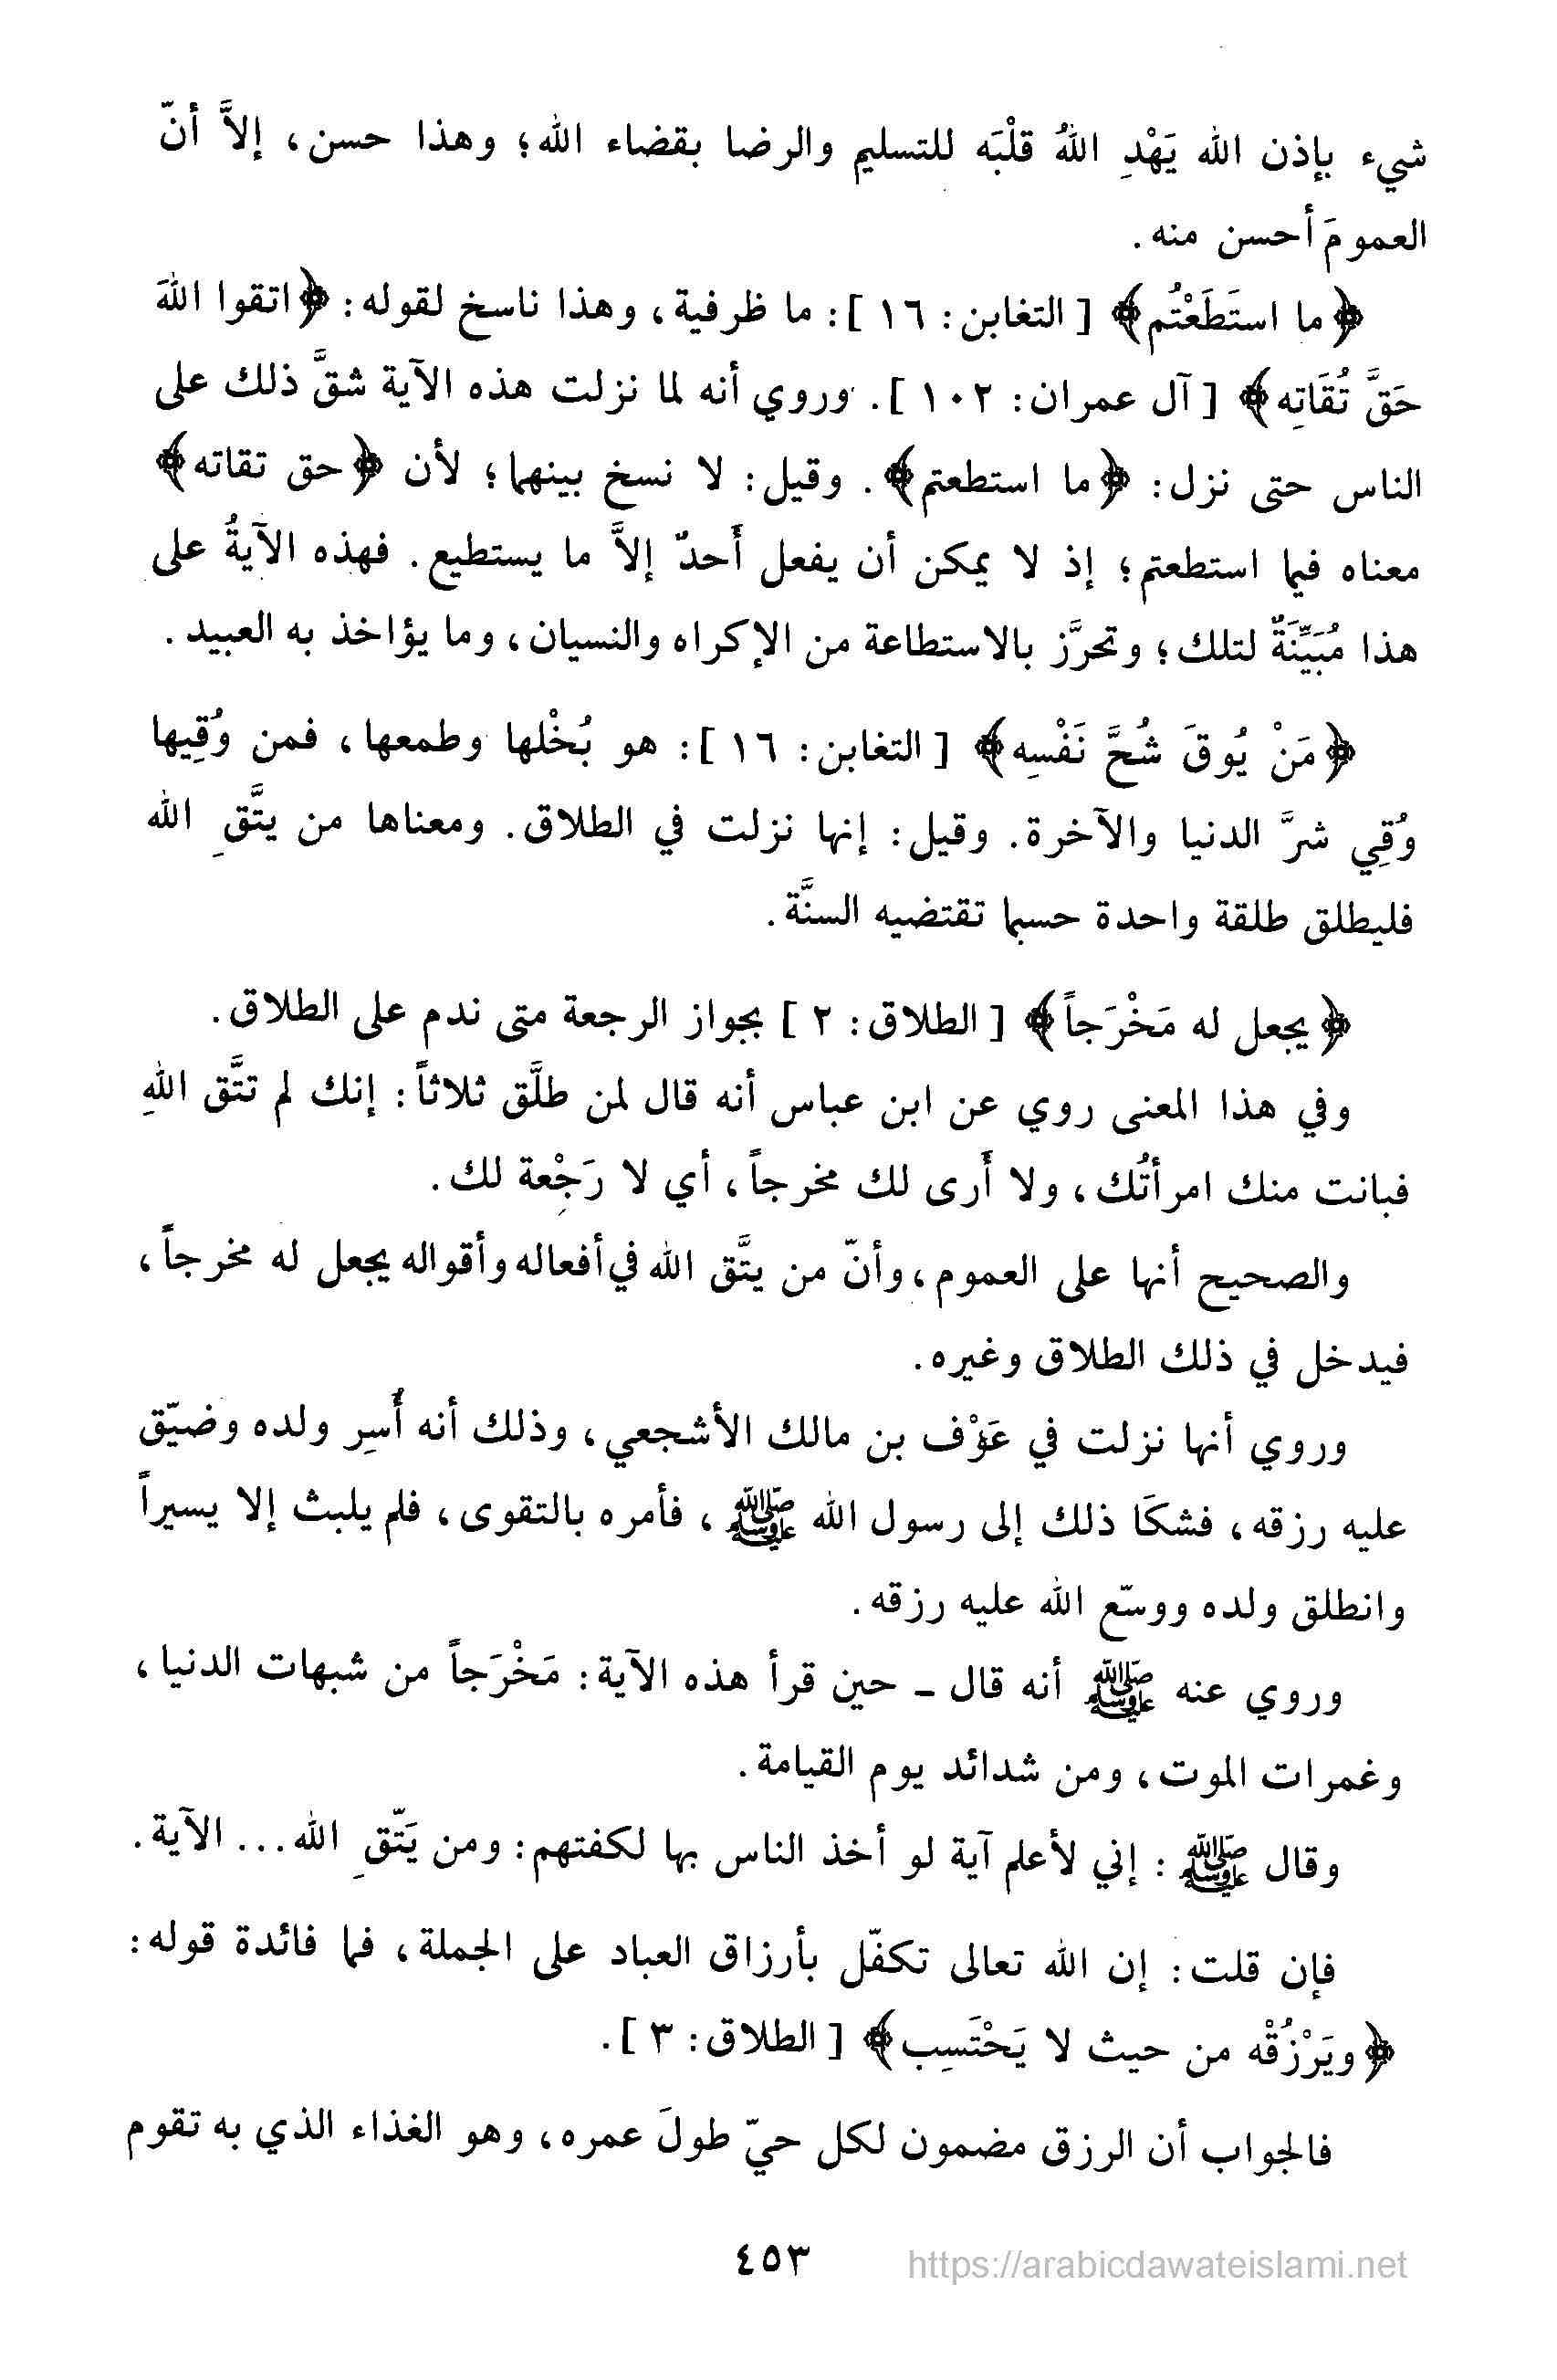 شيء بإذن الله يَهْدِ اللهُ قلْبَه للتسليم والرضا بقضاء الله؛ وهذا حسن، إلاَّ أنّ
العمومَ أحسن منه.
﴿ما استَطَعْتُم﴾ [التغابن: ١٦]: ما ظرفية، وهذا ناسخ لقوله: ﴿اتقوا اللهَ
حَقَّ تُقَاتِه﴾ [آل عمران: ١٠٢]. وروي أنه لما نزلت هذه الآية شقَّ ذلك على
الناس حتى نزل: ﴿ما استطعتم﴾. وقيل: لا نسخ بينهما؛ لأن ﴿حق تقاته﴾
معناه فيما استطعتم؛ إذ لا يمكن أن يفعل أَحدٌ إلاَّ ما يستطيع. فهذه الآيةُ على
هذا مُبَيِّنَةٌ لتلك؛ وتحرَّز بالاستطاعة من الإكراه والنسيان، وما يؤاخذ به العبيد.
﴿مَنْ يُوقَ شُحَّ نَفْسِه﴾ [التغابن: ١٦]: هو بُخْلها وطمعها، فمن وُقِيها
وُقِي شرَّ الدنيا والآخرة. وقيل: إنها نزلت في الطلاق. ومعناها من يتَّقِ الله
فليطلق طلقة واحدة حسبما تقتضيه السنَّة.
﴿يجعل له مَخْرَجاً﴾ [الطلاق: ٢] بجواز الرجعة متى ندم على الطلاق.
وفي هذا المعنى روي عن ابن عباس أنه قال لمن طلَّق ثلاثاً: إنك لم تتَّق اللهِ
فبانت منك امرأتُك، ولا أَرى لك مخرجاً، أي لا رَجِْعة لك.
والصحيح أنها على العموم، وأنّ من يتَّق الله في أفعاله وأقواله يجعل له مخرجاً،
فيدخل في ذلك الطلاق وغيره.
وروي أنها نزلت في عَوْف بن مالك الأشجعي، وذلك أنه أُسِر ولده وضيّق
عليه رزقه، فشكَا ذلك إلى رسول الله ﷺ، فأمره بالتقوى، فلم يلبث إلا يسيراً
وانطلق ولده ووسّع الله عليه رزقه.
وروي عنه ﷺ أنه قال ـ حين قرأ هذه الآية: مَخْرَجاً من شبهات الدنيا،
وغمرات الموت، ومن شدائد يوم القيامة.
وقال ﷺ: إني لأعلم آية لو أخذ الناس بها لكفتهم: ومن يَتّقِ الله... الآية.
فإن قلت: إن الله تعالى تكفّل بأرزاق العباد على الجملة، فما فائدة قوله:
﴿ويَرْزُقْه من حيث لا يَحْتَسِب﴾ [الطلاق: ٣].
فالجواب أن الرزق مضمون لكل حيّ طولَ عمره، وهو الغذاء الذي به تقوم
٤٥٣
https://arabicdawateislami.net